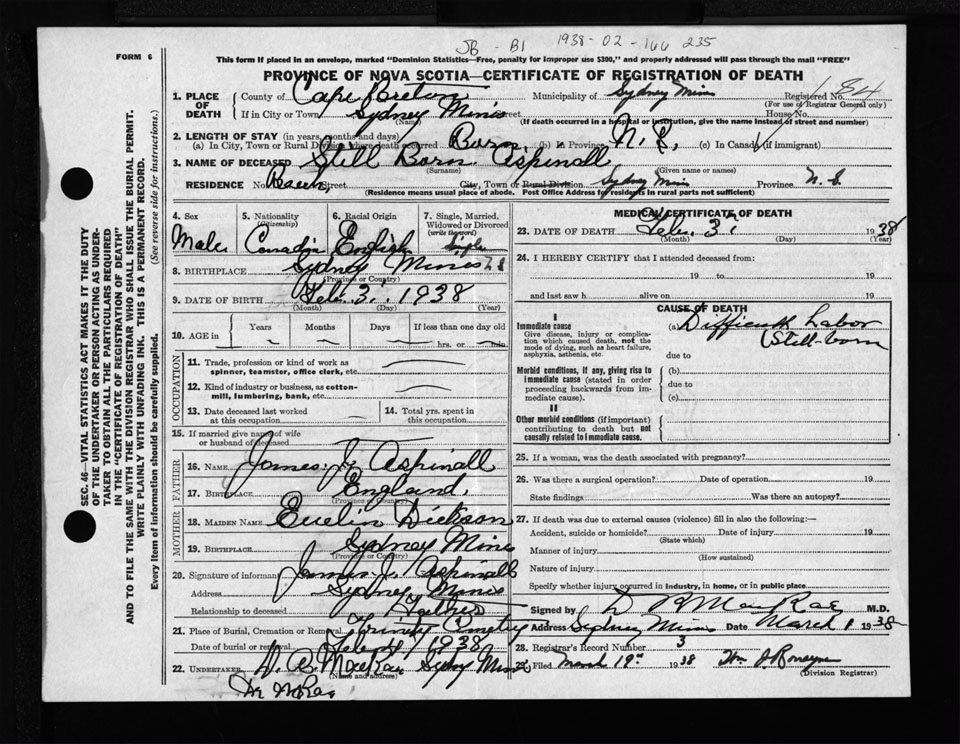 JB - B1 1938-02-166 235
FORM 6
This form if placed in an envelope, marked "Dominion Statistics—Free, penalty for improper use $300," and properly addressed will pass through the mail "FREE"
PROVINCE OF NOVA SCOTIA—CERTIFICATE OF REGISTRATION OF DEATH
SEC. 46—VITAL STATISTICS ACT MAKES IT THE DUTY
OF THE UNDERTAKER OR PERSON ACTING AS UNDER-
TAKER TO OBTAIN ALL THE PARTICULARS REQUIRED
IN THE "CERTIFICATE OF REGISTRATION OF DEATH"
AND TO FILE THE SAME WITH THE DIVISION REGISTRAR WHO SHALL ISSUE THE BURIAL PERMIT.
WRITE PLAINLY WITH UNFADING INK. THIS IS A PERMANENT RECORD.
Every item of information should be carefully supplied. (See reverse side for instructions.)
1. PLACE OF DEATH County of Cape Breton Municipality of Sydney Mines Registered No. 84
(For use of Registrar General only)
If in City or Town Sydney Mines Street House No.
(Name) (If death occurred in a hospital or institution, give the name instead of street and number)
2. LENGTH OF STAY (in years, months and days)
(a) In City, Town or Rural Division where death occurred Born (b) in Province N.S. (c) In Canada (if immigrant)
3. NAME OF DECEASED Still Born Aspinall
(Surname) (Given name or names)
RESIDENCE No. Beech Street City, Town or Rural Division Sydney Mines Province N.S.
(Residence means usual place of abode. Post Office Address for residents in rural parts not sufficient)
4. Sex Male
5. Nationality (Citizenship) Canadian
6. Racial Origin English
7. Single, Married, Widowed or Divorced (write the word) Single
8. BIRTHPLACE Sydney Mines N.S.
(Province or Country)
9. DATE OF BIRTH Feb. 3, 1938
(Month) (Day) (Year)
10. AGE in Years Months Days If less than one day old
hrs. or min.
OCCUPATION
11. Trade, profession or kind of work as
spinner, teamster, office clerk, etc.
12. Kind of industry or business, as cotton-
mill, lumbering, bank, etc.
13. Date deceased last worked
at this occupation
14. Total yrs. spent in
this occupation
15. If married give name of wife
or husband of deceased
FATHER
16. NAME James J. Aspinall
17. Birthplace England
(Province or Country)
MOTHER
18. MAIDEN NAME Evelin Dickson
19. BIRTHPLACE Sydney Mines
(Province or Country)
20. Signature of informant James J. Aspinall
Address Sydney Mines
Relationship to deceased Father
21. Place of Burial, Cremation or Removal Trinity Cemetry
Date of burial or removal Feb 4, 1938
22. UNDERTAKER MacRae Sydney Mines
(Name and address)
MEDICAL CERTIFICATE OF DEATH
23. DATE OF DEATH Feb. 3, 1938
(Month) (Day) (Year)
24. I HEREBY CERTIFY that I attended deceased from:
19 to 19
and last saw h alive on 19
CAUSE OF DEATH
I
Immediate cause
Give disease, injury or complica-
tion which caused death, not the
mode of dying, such as heart failure,
asphyxia, asthenia, etc.
(a) Difficult Labor
(Still-born
due to
Morbid conditions, if any, giving rise to
immediate cause (stated in order
proceeding backwards from im-
mediate cause).
(b)
due to
(c)
II
Other morbid conditions (if important)
contributing to death but not
causally related to immediate cause.
25. If a woman, was the death associated with pregnancy?
26. Was there a surgical operation? Date of operation 19
State findings Was there an autopsy?
27. If death was due to external causes (violence) fill in also the following:—
Accident, suicide or homicide? Date of injury 19
(State which)
Manner of injury
(How sustained)
Nature of injury
Specify whether injury occurred in industry, in home, or in public place
Signed by MacRae M.D.
Address Sydney Mines Date March 1 1938
28. Registrar's Record Number 3
Filed March 19th 1938
(Division Registrar)